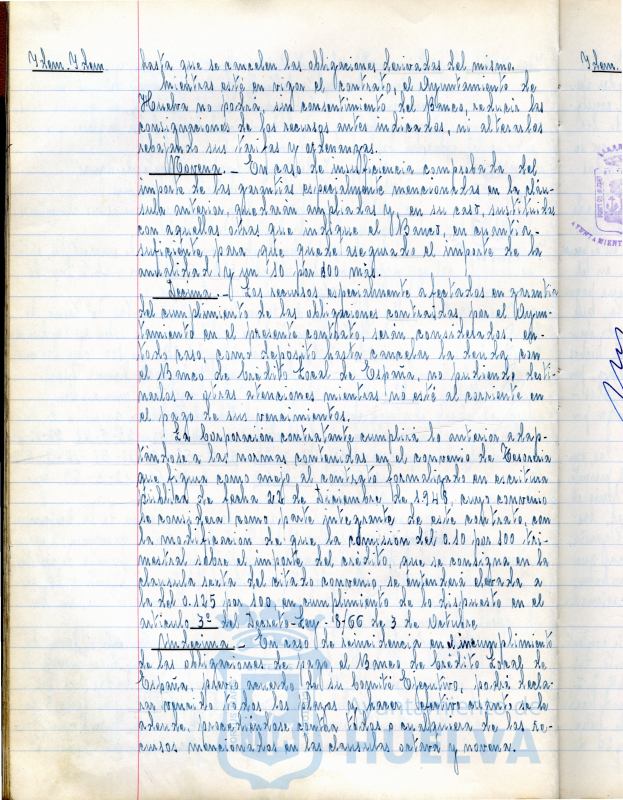 Idem. Idem.
hasta que se cancelen las obligaciones derivadas del mismo.
Mientras esté en vigor el contrato, el Ayuntamiento de
Huelva no podrá, sin consentimiento del Banco, reducir las
consignaciones de los recursos antes indicados, ni alterarlos
rebajando sus tarifas y ordenanzas.
Novena.- En caso de insuficiencia comprobada del
importe de las garantías especialmente mencionadas en la cláu-
sula anterior, quedarán ampliadas y, en su caso, sustituidas
con aquellas otras que indique el Banco, en cuantía
suficiente para que quede asegurado el importe de la
anualidad y un 10 por 100 más.
Décima.- Los recursos especialmente afectados en garantía
del cumplimiento de las obligaciones contraidas, por el Ayun-
tamiento en el presente contrato, serán considerados, en
todo caso, como depósito hasta cancelar la deuda con
el Banco de Crédito Local de España, no pudiendo desti-
narlos a otras atenciones mientras no esté al corriente en
el pago de sus vencimientos.
La Corporación contratante cumplirá lo anterior adap-
tándose a las normas contenidas en el convenio de Tesorería
que figura como anejo al contrato formalizado en escritura
pública de fecha 22 de Diciembre de 1.948, cuyo convenio
se considera como parte integrante de este contrato, con
la modificación de que la comisión del 0.10 por 100 tri-
mestral sobre el importe del crédito, que se consigna en la
clausula sexta del citado convenio, se entenderá elevada a
la del 0.125 por 100, en cumplimiento de lo dispuesto en el
artículo 3º del Decreto-Ley -8-66 de 3 de Octubre.
Undécima.- En caso de reincidencia en el incumplimiento
de las obligaciones de pago el Banco de Crédito Local de
España, previo acuerdo de su Comité Ejecutivo, podrá decla-
rar vencido todos los plazos y hacer efectivo cuanto se le
adeude, procediéndose contra todos o cualquiera de los re-
cursos mencionados en las clausulas octava y novena.
Idem.
Ayuntamiento de
HUELVA